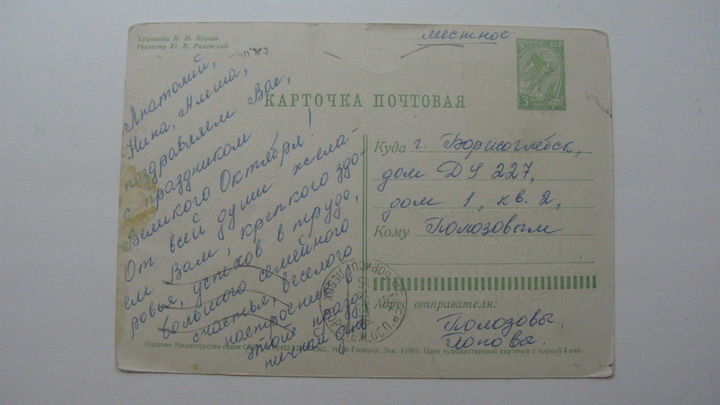 Художник И. И.
Редактор Ю. В.
местное
ПОЧТА СССР
3
КАРТОЧКА ПОЧТОВАЯ
Анатолий,
Нина, Алеша,
поздравляем Вас,
с праздником
Великого Октября!
От всей души жела-
ем Вам, крепкого здо-
ровья, успехов в труде,
большого семейного
счастья, веселого
настроения в
этот празд
ничный день
Куда г. Борисоглебск,
дом ДУ 227,
дом 1, кв. 2,
Кому Полозовым
Адрес отправителя:
Полозовы,
Поповы.
Издание Министерства связи Зак. Цена художественной карточки с маркой 4 коп.